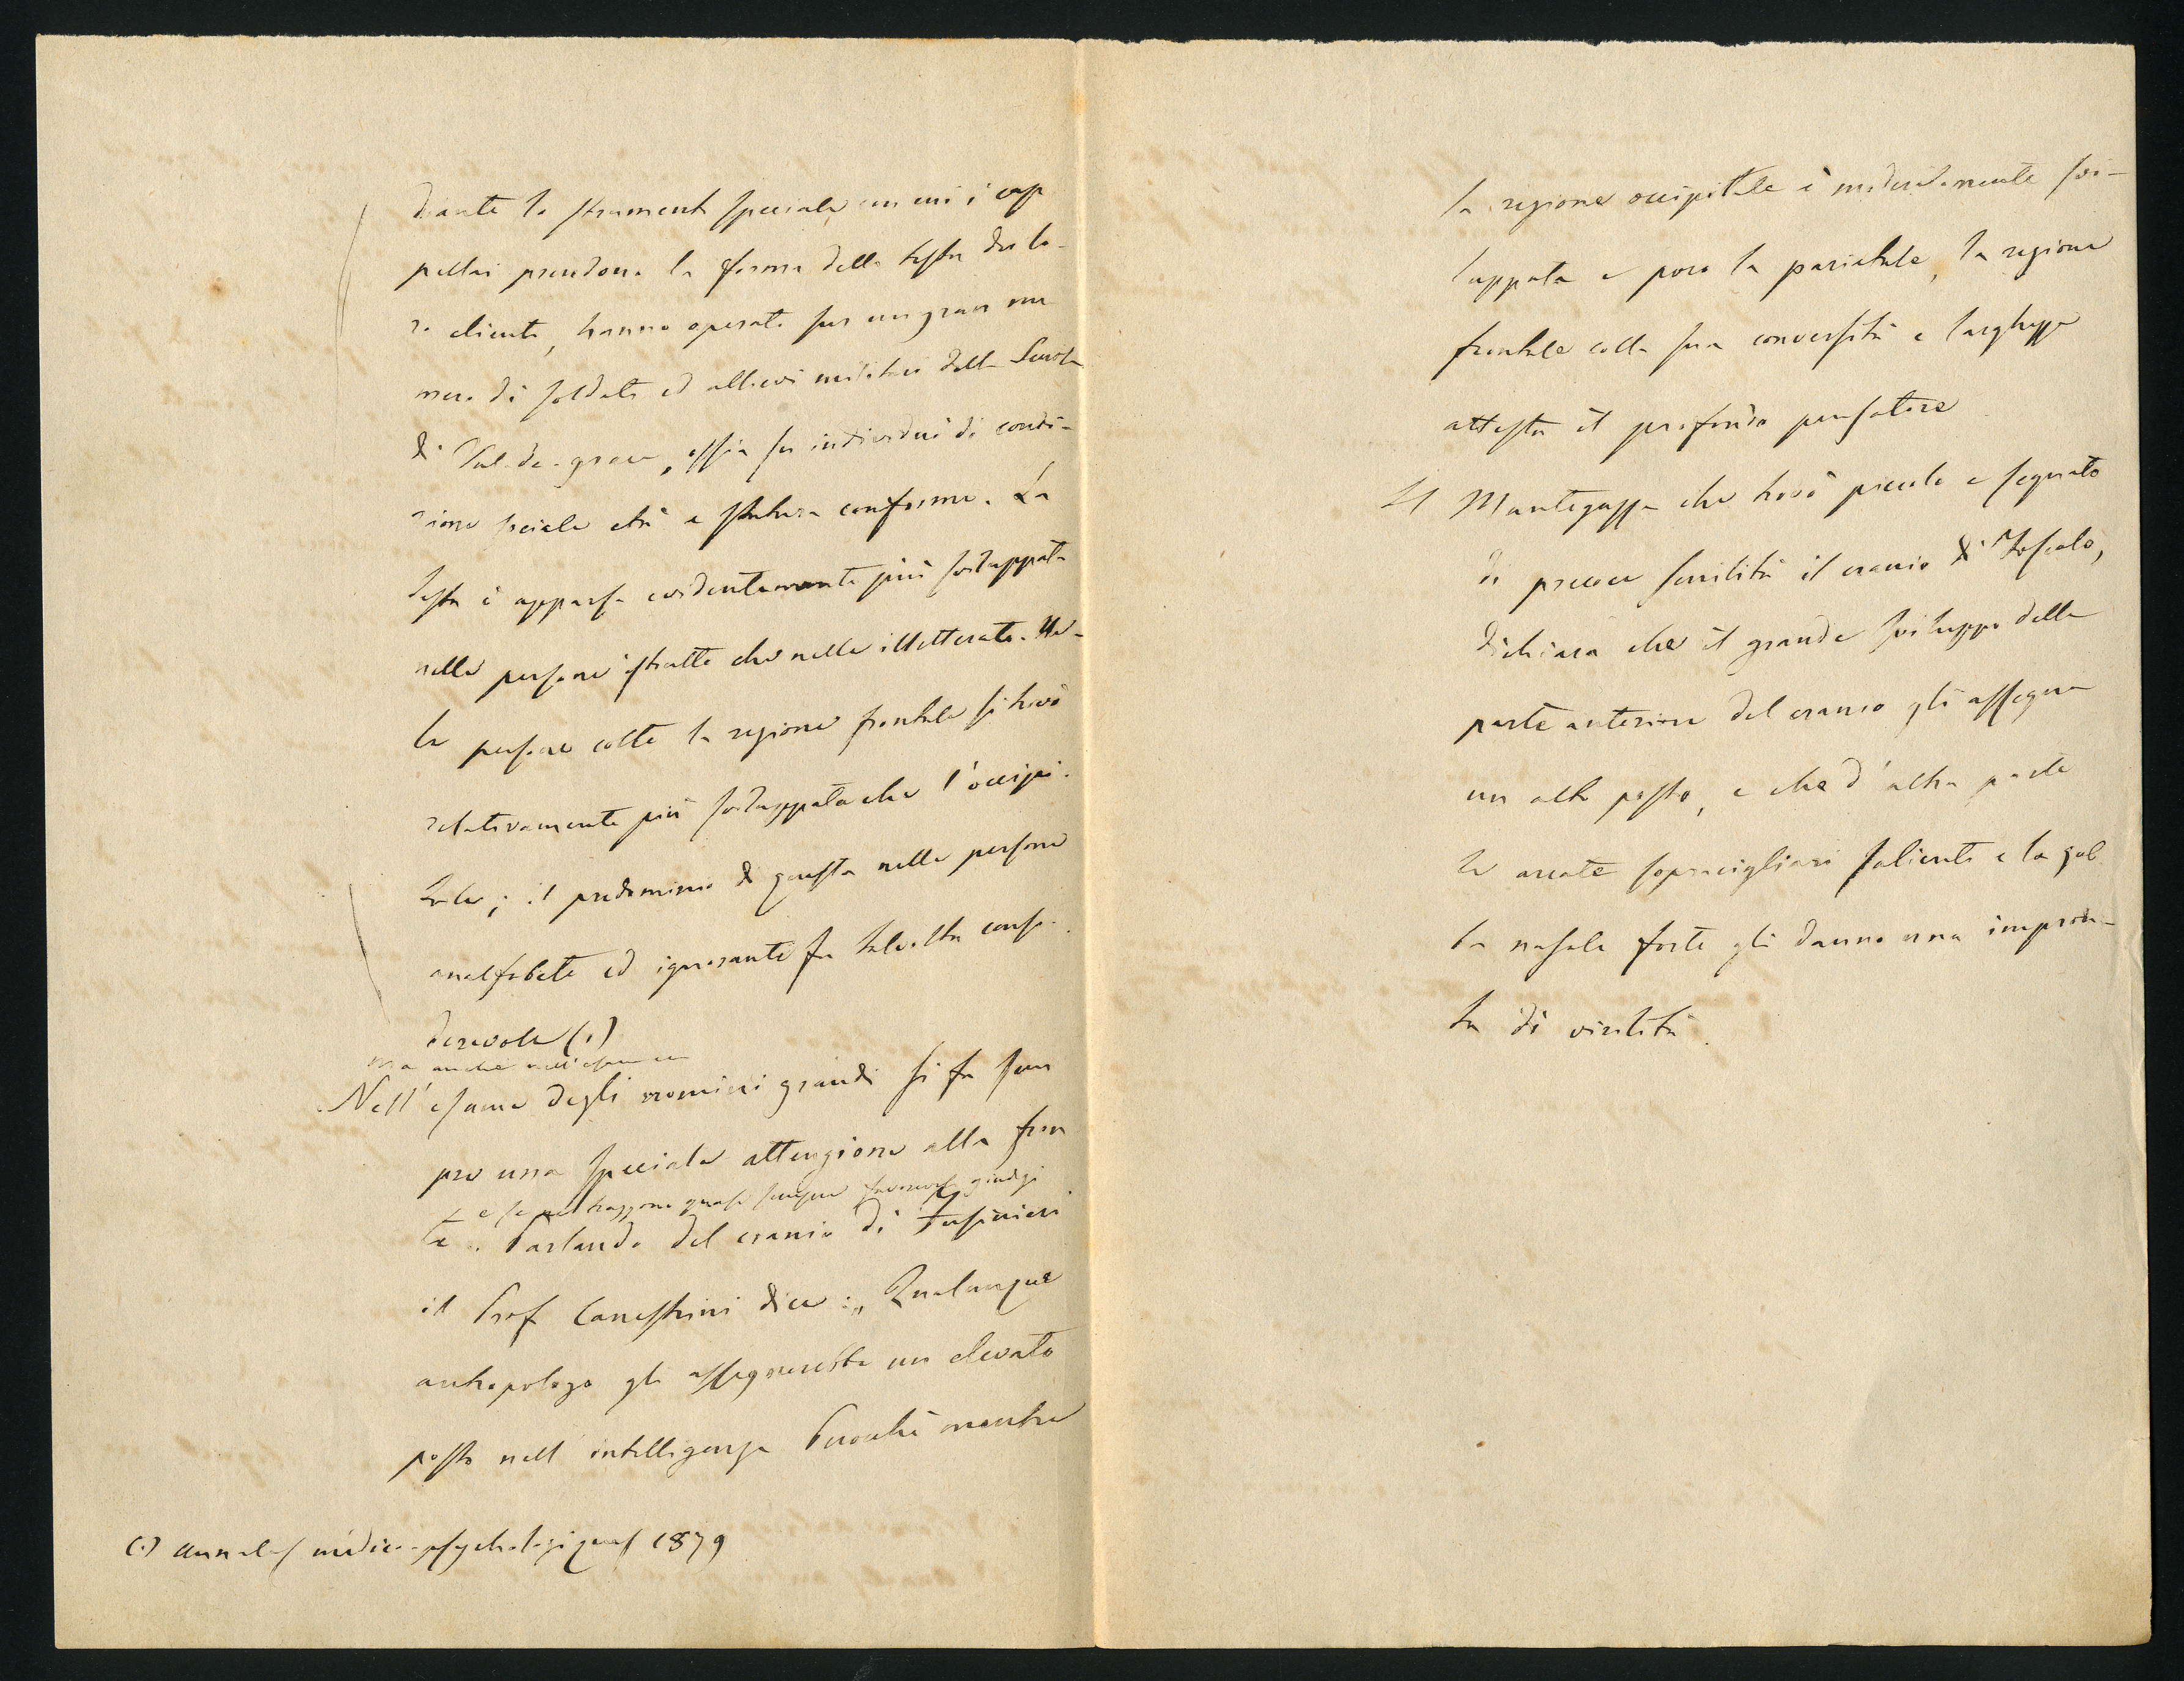 diante lo strumento speciale, con cui i cap
pellai prendono la forma della testa dei lo-
ro clienti, hanno operato sur un gran nu
mero di soldati ed allievi militari della Scuola
di Val-de-grace, ossia su individui di condi-
zione sociale età e statura conforme. La
testa è apparsa evidentemente più sviluppata
nelle persone istrutte che nelle illetterate. Nel-
le persone colte la regione frontale si trovò
relativamente più sviluppata che l'occipi-
tale; il predominio di questa nelle persone
analfabete ed ignoranti fu talvolta consi-
derevole (1)
ma anche nell'esame
Nell'esame degli uomini grandi si fa sem
pre una speciale attenzione alla fron
e se ne traggono quasi sempre favorevoli giudizi
te. Parlando del cranio di Fusinieri
il Prof Canestrini dice: „Qualunque
antropologo gli assegnerebbe un elevato
posto nell'intelligenza Perocchè mentre
(1) Annales médico-psychologiques 1879
la regione occipitale è moderatamente svi-
luppata e poco la parietale, la regione
frontale colla sua convessità e larghezza
attesta il profondo pensatore
Il Mantegazza che trovò piccolo e segnato
di precoce senilità il cranio di Foscolo,
dichiara che il grande sviluppo della
parte anteriore del cranio gli assegna
un alto posto, e che d'altra parte
le arcate sopracigliari salienti e la gob
ba nasale forte gli danno una impron-
ta di virilità.